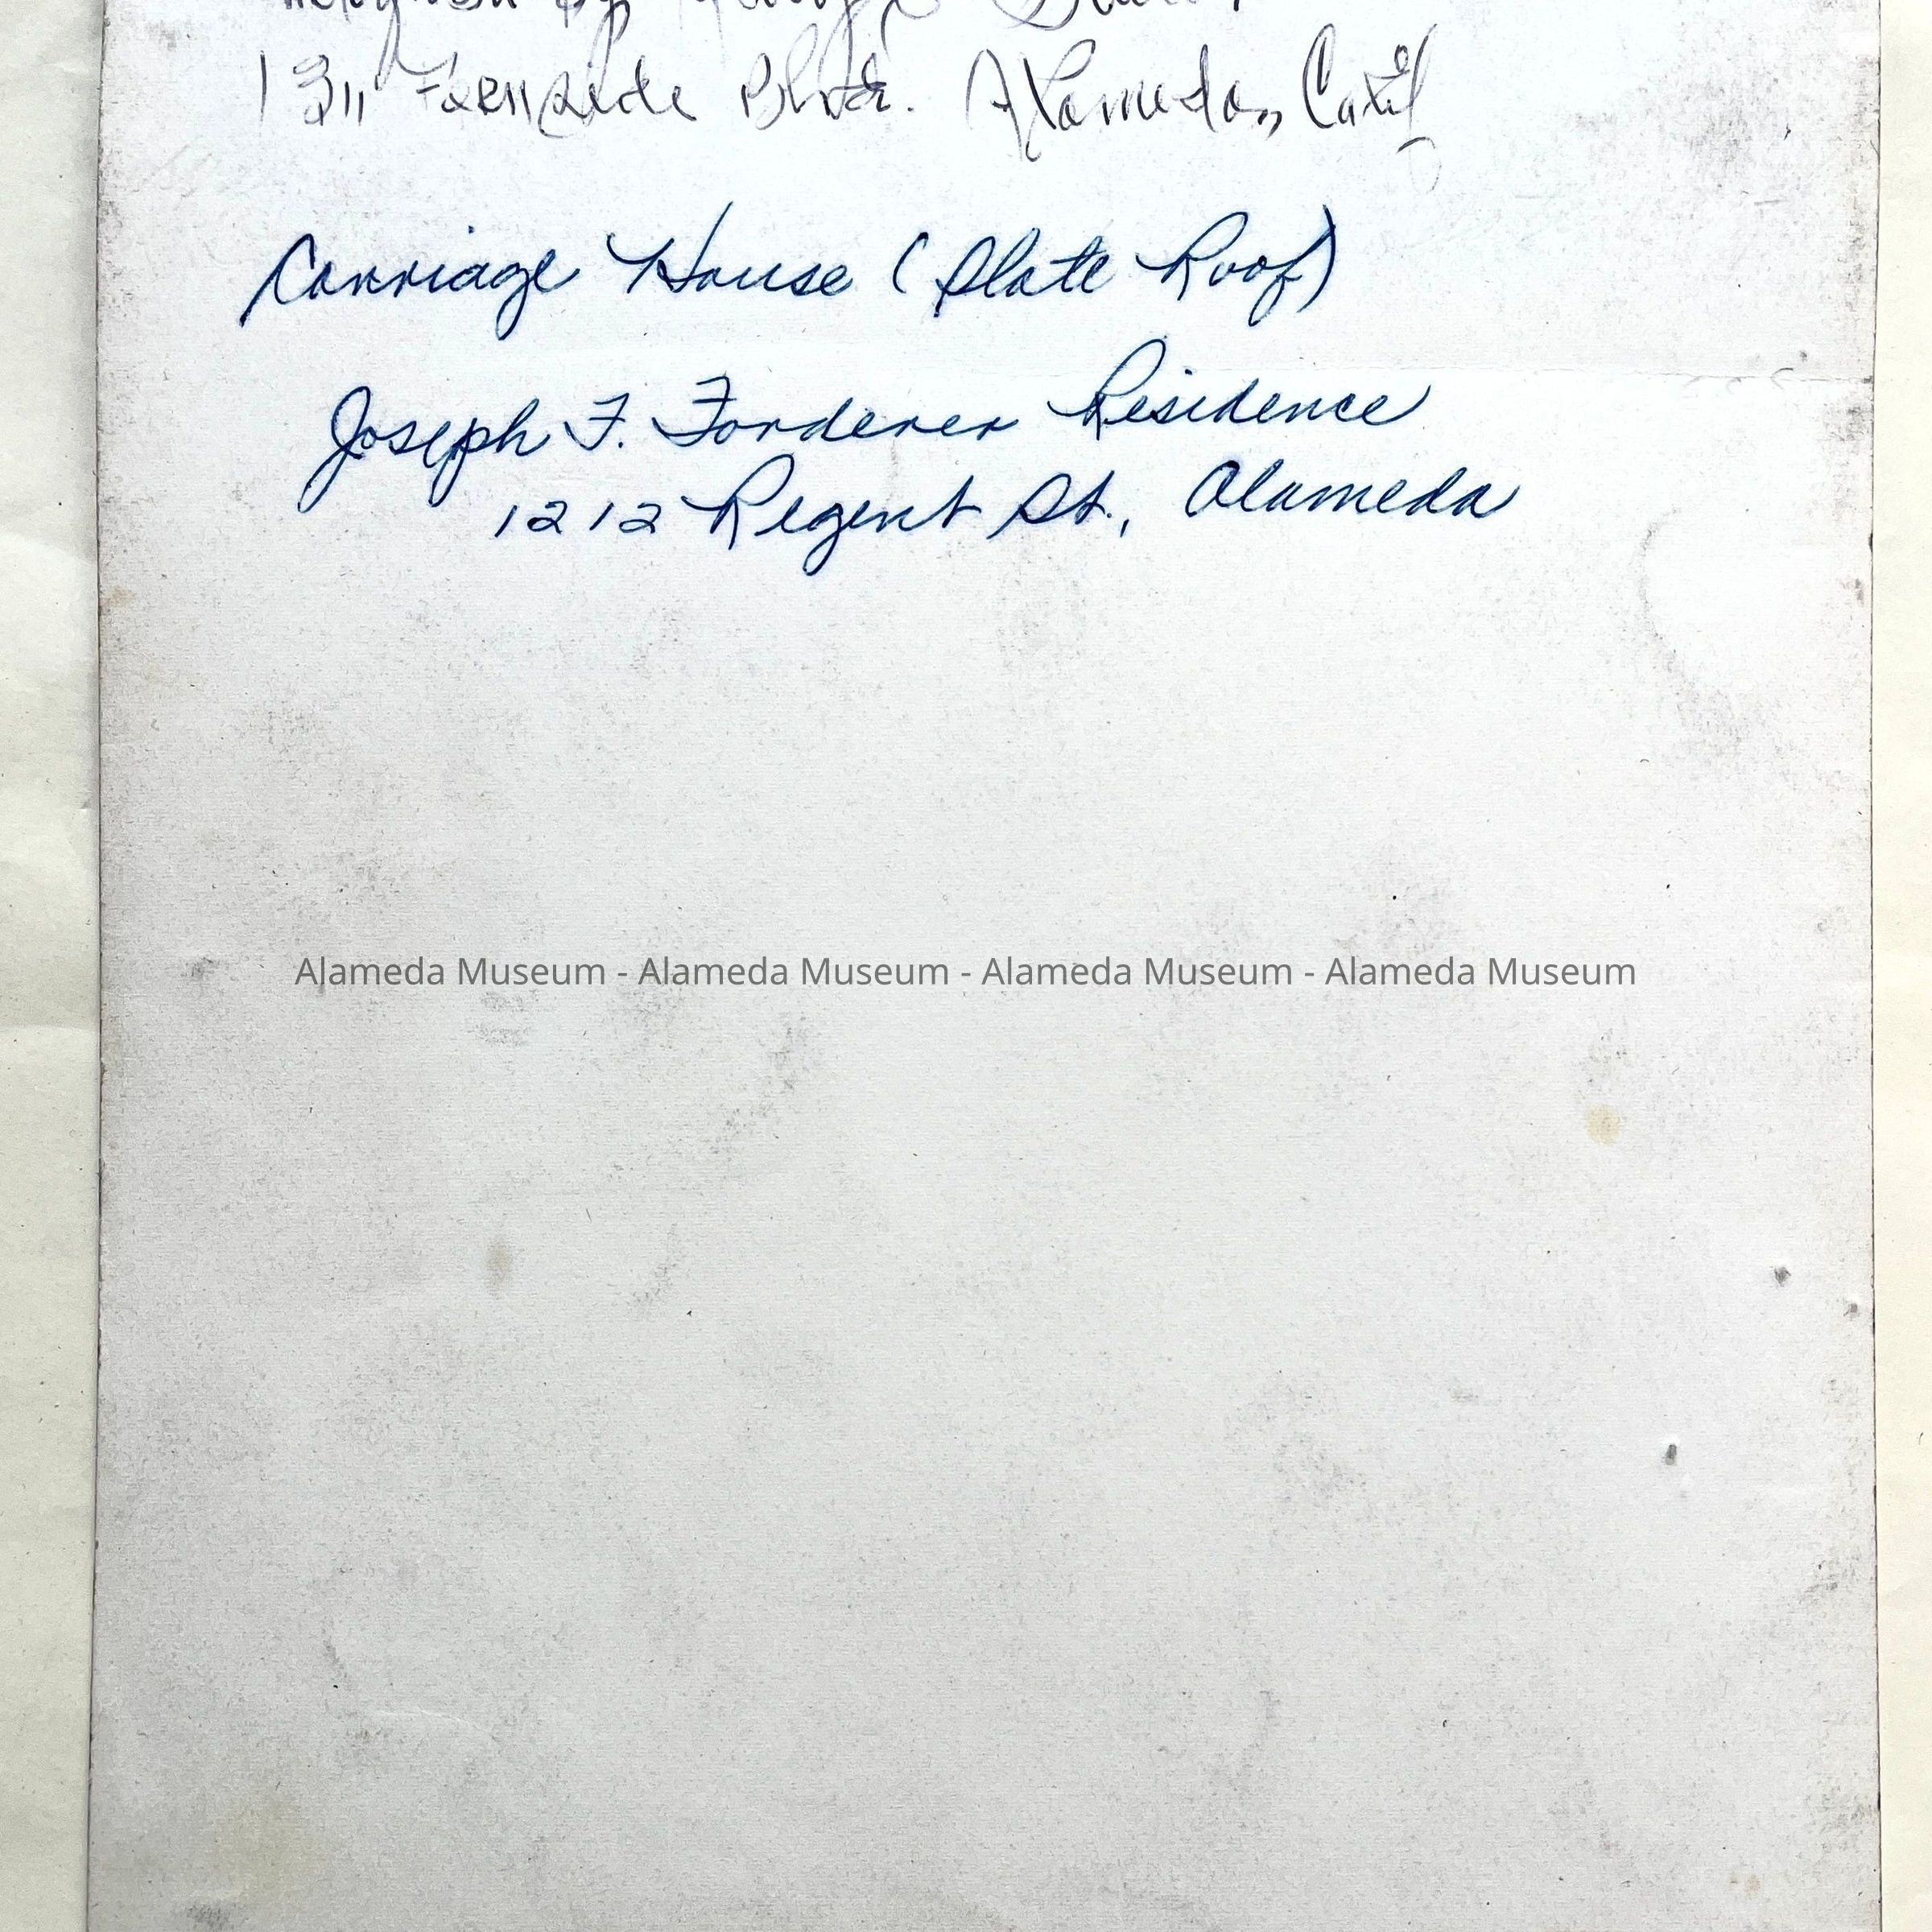 by
1311 Fernside Blvd. Alameda, Calif
Carriage House (Slate Roof)
Joseph F. Forderer Residence
1212 Regent St., Alameda
Alameda Museum - Alameda Museum - Alameda Museum - Alameda Museum